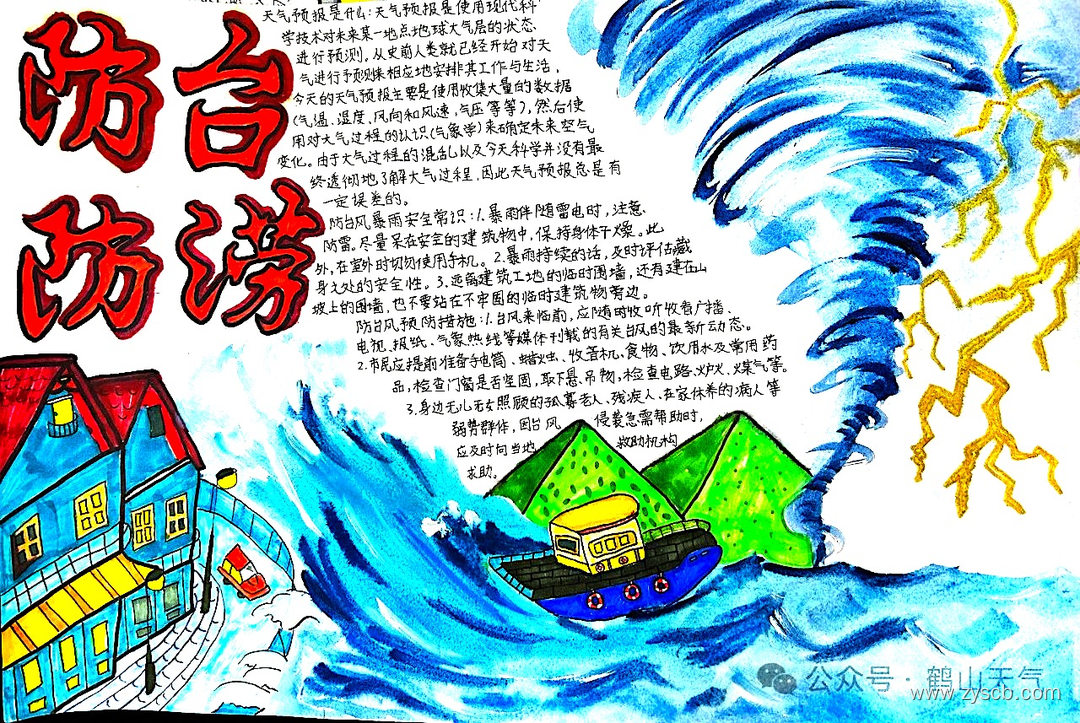 防台
防涝
天气预报是什么:天气预报是使用现代科
学技术对未来某一地点地球大气层的状态
进行预测。从史前人类就已经开始对天
气进行予预测来相应地安排其工作与生活,
今天的天气预报主要是使用收集大量的数据
(气温、湿度、风向和风速、气压等等),然后使
用对大气过程的认识(气象学)来确定未来空气
变化。由于大气过程的混乱以及今天科学并没有最
终透彻地了解大气过程,因此天气预报总是有
一定误差的。
防台风暴雨安全常识:1.暴雨伴随雷电时,注意
防雷。尽量呆在安全的建筑物中,保持身体干燥。此
外,在室外时切勿使用手机。2.暴雨持续的话,及时评估藏
身之处的安全性。3.远离建筑工地的临时围墙,还有建在山
坡上的围墙,也不要站在不牢固的临时建筑物旁边。
防台风预防措施:1.台风来临前,应随时收听收看广播、
电视、报纸、气象热线等媒体刊载的有关台风的最新动态。
2.市民应提前准备手电筒、蜡烛、收音机、食物、饮用水及常用药
品,检查门窗是否坚固,取下悬、吊物,检查电路、炉火、煤气等。
3.身边无儿无女照顾的孤寡老人、残疾人、在家休养的病人等
弱势群体,因台风侵袭急需帮助时,
应及时向当地救助机构
求助。
公众号·鹤山天气
www.zyscb.com